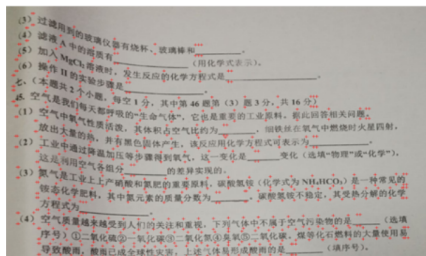 (3) 过滤用到的玻璃仪器有烧杯、玻璃棒和
(4) 滤液A中的溶质有（用化学式表示）。
(5) 加入MgCl₂溶液时，发生反应的化学方程式是。
(6) 操作II的实验步骤是。
七、(本题共2个小题，每空1分，其中第46题第（3）题3分，共16分)
45. 空气是我们每天都呼吸的“生命气体”，它也是重要的工业原料，据此回答相关问题。
(1) 空气中氧气性质活泼，其体积占空气比约为，细铁丝在氧气中燃烧时火星四射，
放出大量的热，并有黑色固体产生，该反应用化学方程式可表示为。
(2) 工业中通过降温加压等步骤得到氧气，这一变化是变化（选填“物理”或“化学”），
这是利用空气各组分的差异实现的。
(3) 氮气是工业上生产硝酸和氮肥的重要原料，碳酸氢铵（化学式为NH₄HCO₃）是一种常见的
铵态化学肥料，其中氮元素的质量分数为，碳酸氢铵不稳定，其受热分解的化学
方程式为。
(4) 空气质量越来越受到人们的关注和重视，下列气体中不属于空气污染物的是（选填
序号）①二氧化硫②一氧化碳③二氧化氮④臭氧⑤二氧化碳，煤等化石燃料的大量使用易
导致酸雨，酸雨已成全球性灾害，上述气体易形成酸雨的是（填序号）。